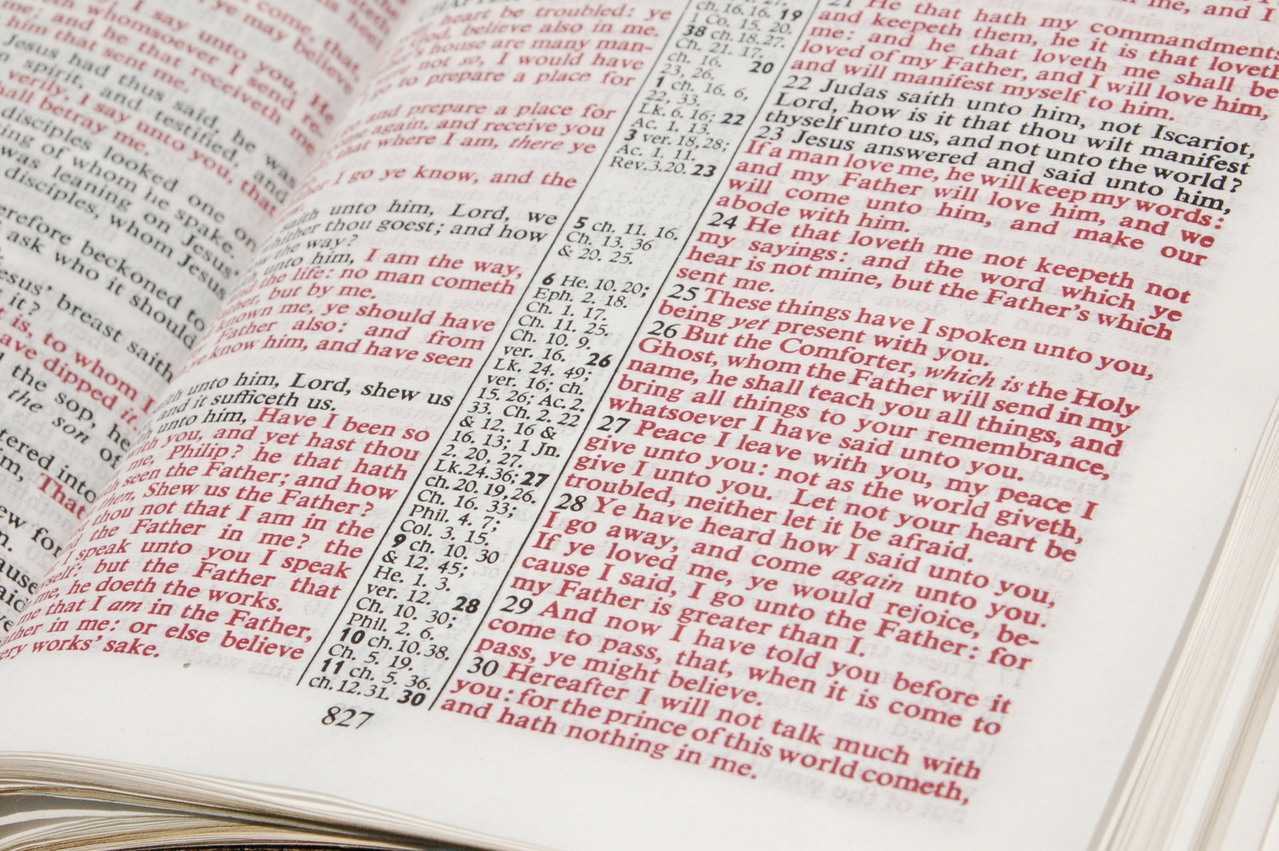 I say unto you,
whomsoever I send
and he that receiveth
him that sent me.
Jesus had thus said, he was
spirit, and testified, and
verily, I say unto you, that
shall betray me.
disciples looked one on
of whom he spake.
was leaning on Jesus'
disciples, whom Jesus
beckoned to
ask who it should
Jesus' breast saith
it?
is, to whom I
have dipped it.
the sop, he
the son of
entered into
him, That
heart be troubled: ye
God, believe also in me.
house are many man-
not so, I would have
to prepare a place for
and prepare a place for
come again, and receive you
that where I am, there ye
I go ye know, and the
saith unto him, Lord, we
whither thou goest; and how
the way?
unto him, I am the way,
the life: no man cometh
but by me.
known me, ye should have
Father also: and from
know him, and have seen
unto him, Lord, shew us
and it sufficeth us.
unto him, Have I been so
with you, and yet hast thou
me, Philip? he that hath
seen the Father; and how
then, Shew us the Father?
thou not that I am in the
the Father in me? the
speak unto you I speak
but the Father that
me, he doeth the works.
me that I am in the Father,
in me: or else believe
very works' sake.
ch. 16. 16. 19
1 Co. 15. 20.
38 ch. 18. 27.
Ch. 21. 17.
ch. 16. 20
23, 26.
1 ch. 16. 6,
22, 33.
Lk. 6. 16; 22
Ac. 1. 13.
3 ver. 18, 28;
Ac. 1. 11.
Rev. 3. 20. 23
5 ch. 11. 16.
Ch. 13. 36
& 20. 25.
6 He. 10. 20;
Eph. 2. 18.
Ch. 1. 17.
Ch. 11. 25.
Ch. 10. 9,
ver. 16. 26
Lk. 24. 49;
ver. 16; ch.
15. 26; Ac. 2.
33. Ch. 2. 22
& 12. 16 &
16. 13; 1 Jn.
2. 20, 27.
Lk. 24. 36; 27
ch. 20. 19, 26.
Ch. 16. 33;
Phil. 4. 7;
Col. 3. 15.
9 ch. 10. 30
& 12. 45;
He. 1. 3.
ver. 12. 28
Ch. 10. 30;
Phil. 2. 6.
10 ch. 10. 38.
Ch. 5. 19.
11 ch. 5. 36.
ch. 12. 31. 30
21 He that hath my commandments
and keepeth them, he it is that loveth
me: and he that loveth me shall be
loved of my Father, and I will love him,
and will manifest myself to him.
22 Judas saith unto him, not Iscariot,
Lord, how is it that thou wilt manifest
thyself unto us, and not unto the world?
23 Jesus answered and said unto him,
If a man love me, he will keep my words:
and my Father will love him, and we
will come unto him, and make our
abode with him.
24 He that loveth me not keepeth not
my sayings: and the word which ye
hear is not mine, but the Father's which
sent me.
25 These things have I spoken unto you,
being yet present with you.
26 But the Comforter, which is the Holy
Ghost, whom the Father will send in my
name, he shall teach you all things, and
bring all things to your remembrance,
whatsoever I have said unto you.
27 Peace I leave with you, my peace I
give unto you: not as the world giveth,
give I unto you. Let not your heart be
troubled, neither let it be afraid.
28 Ye have heard how I said unto you,
I go away, and come again unto you.
If ye loved me, ye would rejoice, be-
cause I said, I go unto the Father: for
my Father is greater than I.
29 And now I have told you before it
come to pass, that, when it is come to
pass, ye might believe.
30 Hereafter I will not talk much with
you: for the prince of this world cometh,
and hath nothing in me.
827